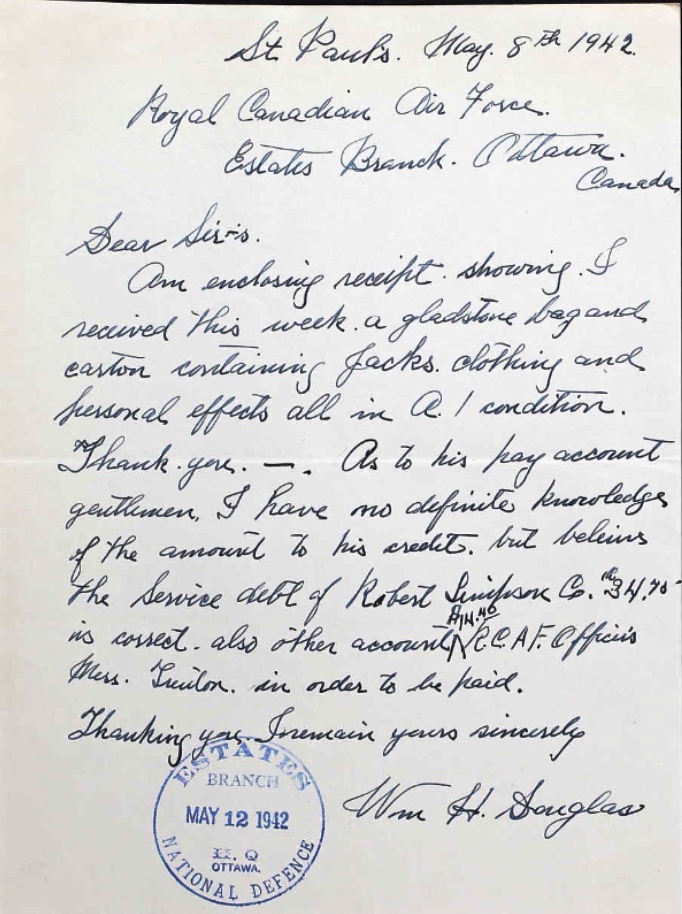 St. Paul's. May. 8th 1942.
Royal Canadian Air Force.
Estates Branch. Ottawa.
Canada
Dear Sir-s.
Am enclosing receipt. showing. I
received this week. a gladstone bag and
carton containing Jacks. clothing and
personal effects all in A. 1 condition.
Thank. you. —. As to his pay account
gentlemen. I have no definite knowledge
of the amount to his credit. but believe
the Service debt of Robert Simpson Co. 34.75
$14.40
is correct. also other account R.C.A.F. Officers
Mess. Trenton. in order to be paid.
Thanking you, I remain yours sincerely
Wm H. Douglas
ESTATES
BRANCH
MAY 12 1942
H. Q
OTTAWA.
NATIONAL DEFENCE